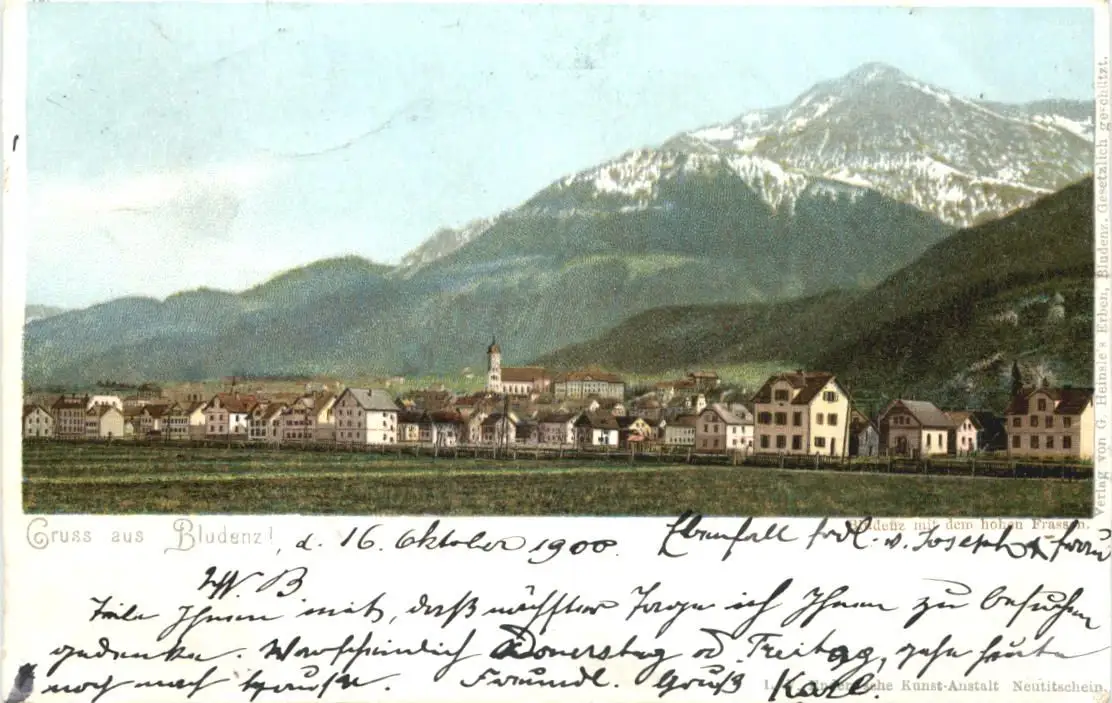 Gruss aus Bludenz!
, d. 16. Oktober 1900.
Bludenz mit dem hohen Frassen.
Ebenfalls frdl. v. Joseph & Frau
W. B
Teile Ihnen mit, daß nächster Tage ich Ihnen zu besuchen
gedenke. Warscheinlich Donerstag od. Freitag, gehe heute
noch nach Hause. Freundl. Gruß Karl.
Kunst-Anstalt Neutitschein.
Verlag von G. Heinsle's Erben, Bludenz. Gesetzlich geschützt.